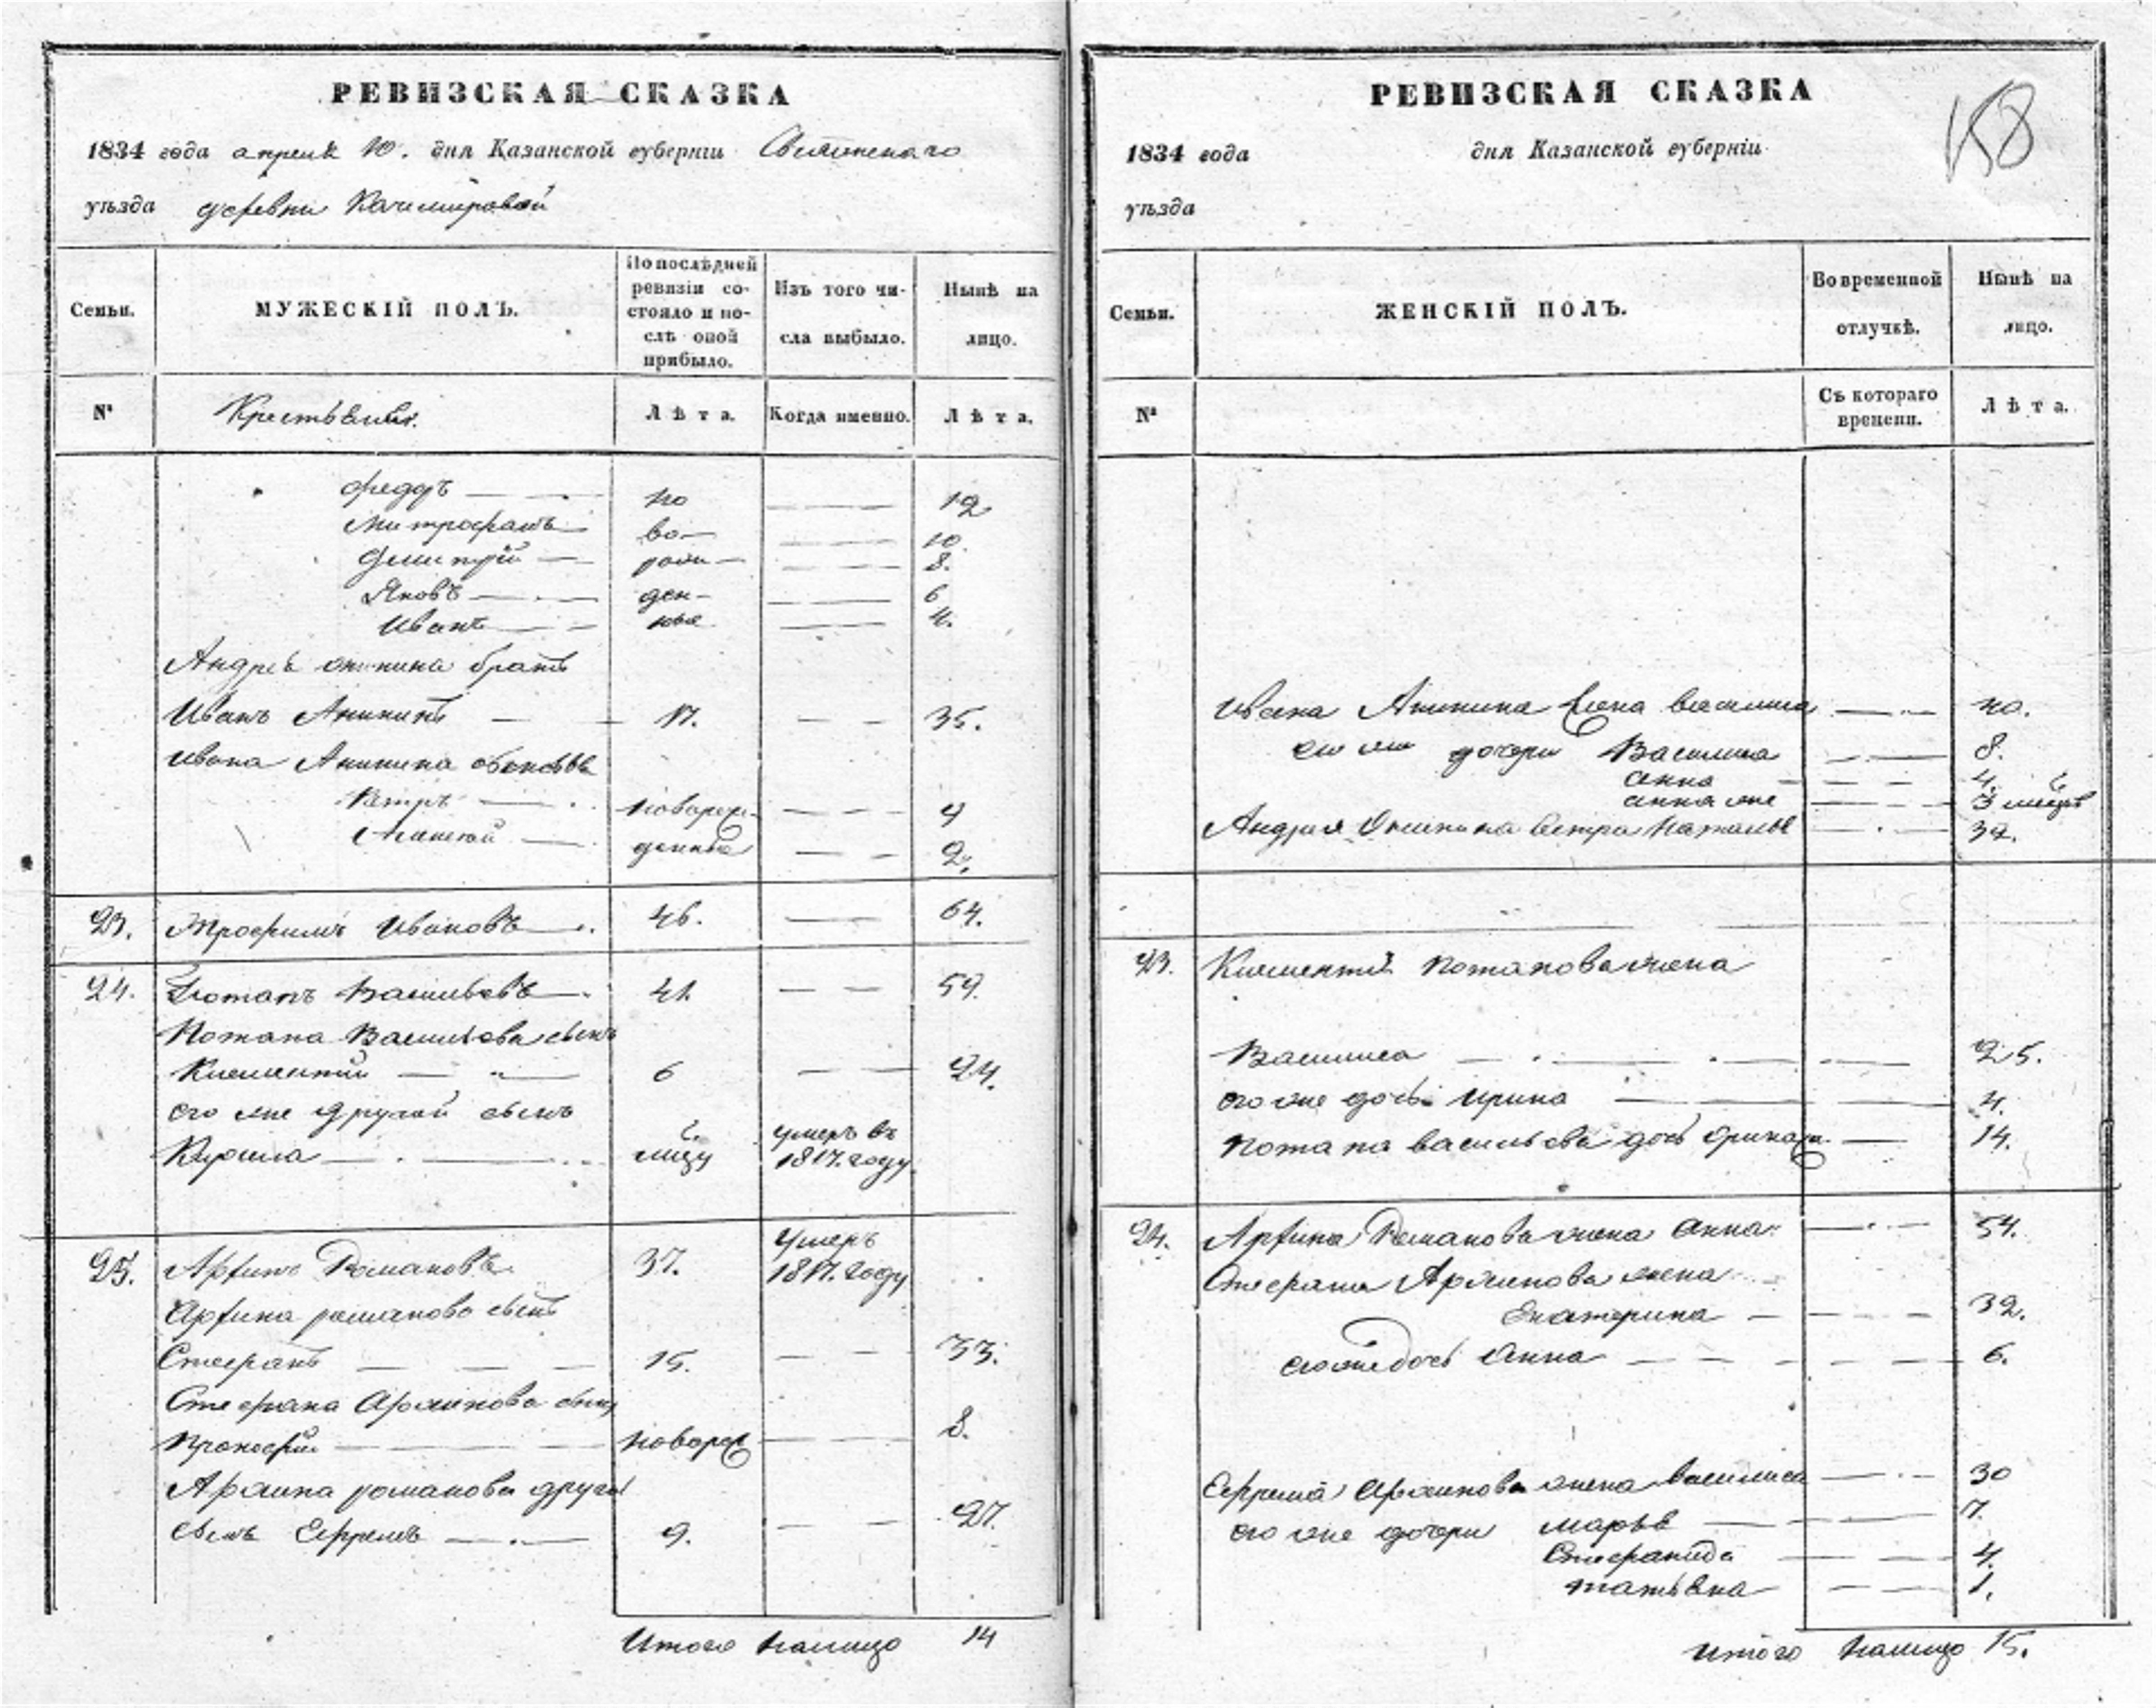 РЕВИЗСКАЯ СКАЗКА
1834 года апреля 10. дня Казанской губерніи
уѣзда деревни
Семьи.
МУЖЕСКІЙ ПОЛЪ.
По послѣдней
ревизіи со-
стояло и по-
слѣ оной
прибыло.
Изъ того чи-
сла выбыло.
Нынѣ на
лицо.
№
Крестьяне
Лѣта.
Когда именно.
Лѣта.
Федоръ но 12
Митрофанъ во- 10.
Дмитрій рож- 8.
Яковъ ден- 6
Иванъ ные 4.
Андрея братъ
Иванъ Аникинъ 17. 35.
Ивана Аникина сыновья
Петръ новорож- 4
Алексей денные 2.
23. Трофимъ Ивановъ 46. 64.
24. Потапъ Васильевъ 41. 59.
Потапа Васильева сынъ
Климентий 6 24.
его же другой сынъ
Кирила умеръ въ
1817. году
25. Романовъ 37. Умеръ
1817. году
романова сынъ
Стефанъ 15. 33.
Стефана сынъ
Прокофий новорож 8.
романова другой
сынъ Ефремъ 9. 27.
Итого налицо 14
РЕВИЗСКАЯ СКАЗКА
158
1834 года дня Казанской губерніи
уѣзда
Семьи.
ЖЕНСКІЙ ПОЛЪ.
Во временной
отлучкѣ.
Нынѣ на
лицо.
№
Съ котораго
времени.
Лѣта.
Ивана Аникина Елена
его же дочери Василиса 8.
Анна 4.
анна же 3
Андрея сестра Наталья
23. Климентия Потапова жена
Василиса 25.
его же дочь Ирина 4.
Потапа васильева дочь 14.
24. Романова жена Анна 54.
Стефана жена
Екатерина 32.
его же дочь Анна 6.
Ефрема жена Василиса 30
его же дочери Марья 7.
Стефанида 4.
татьяна 1.
итого налицо 15.